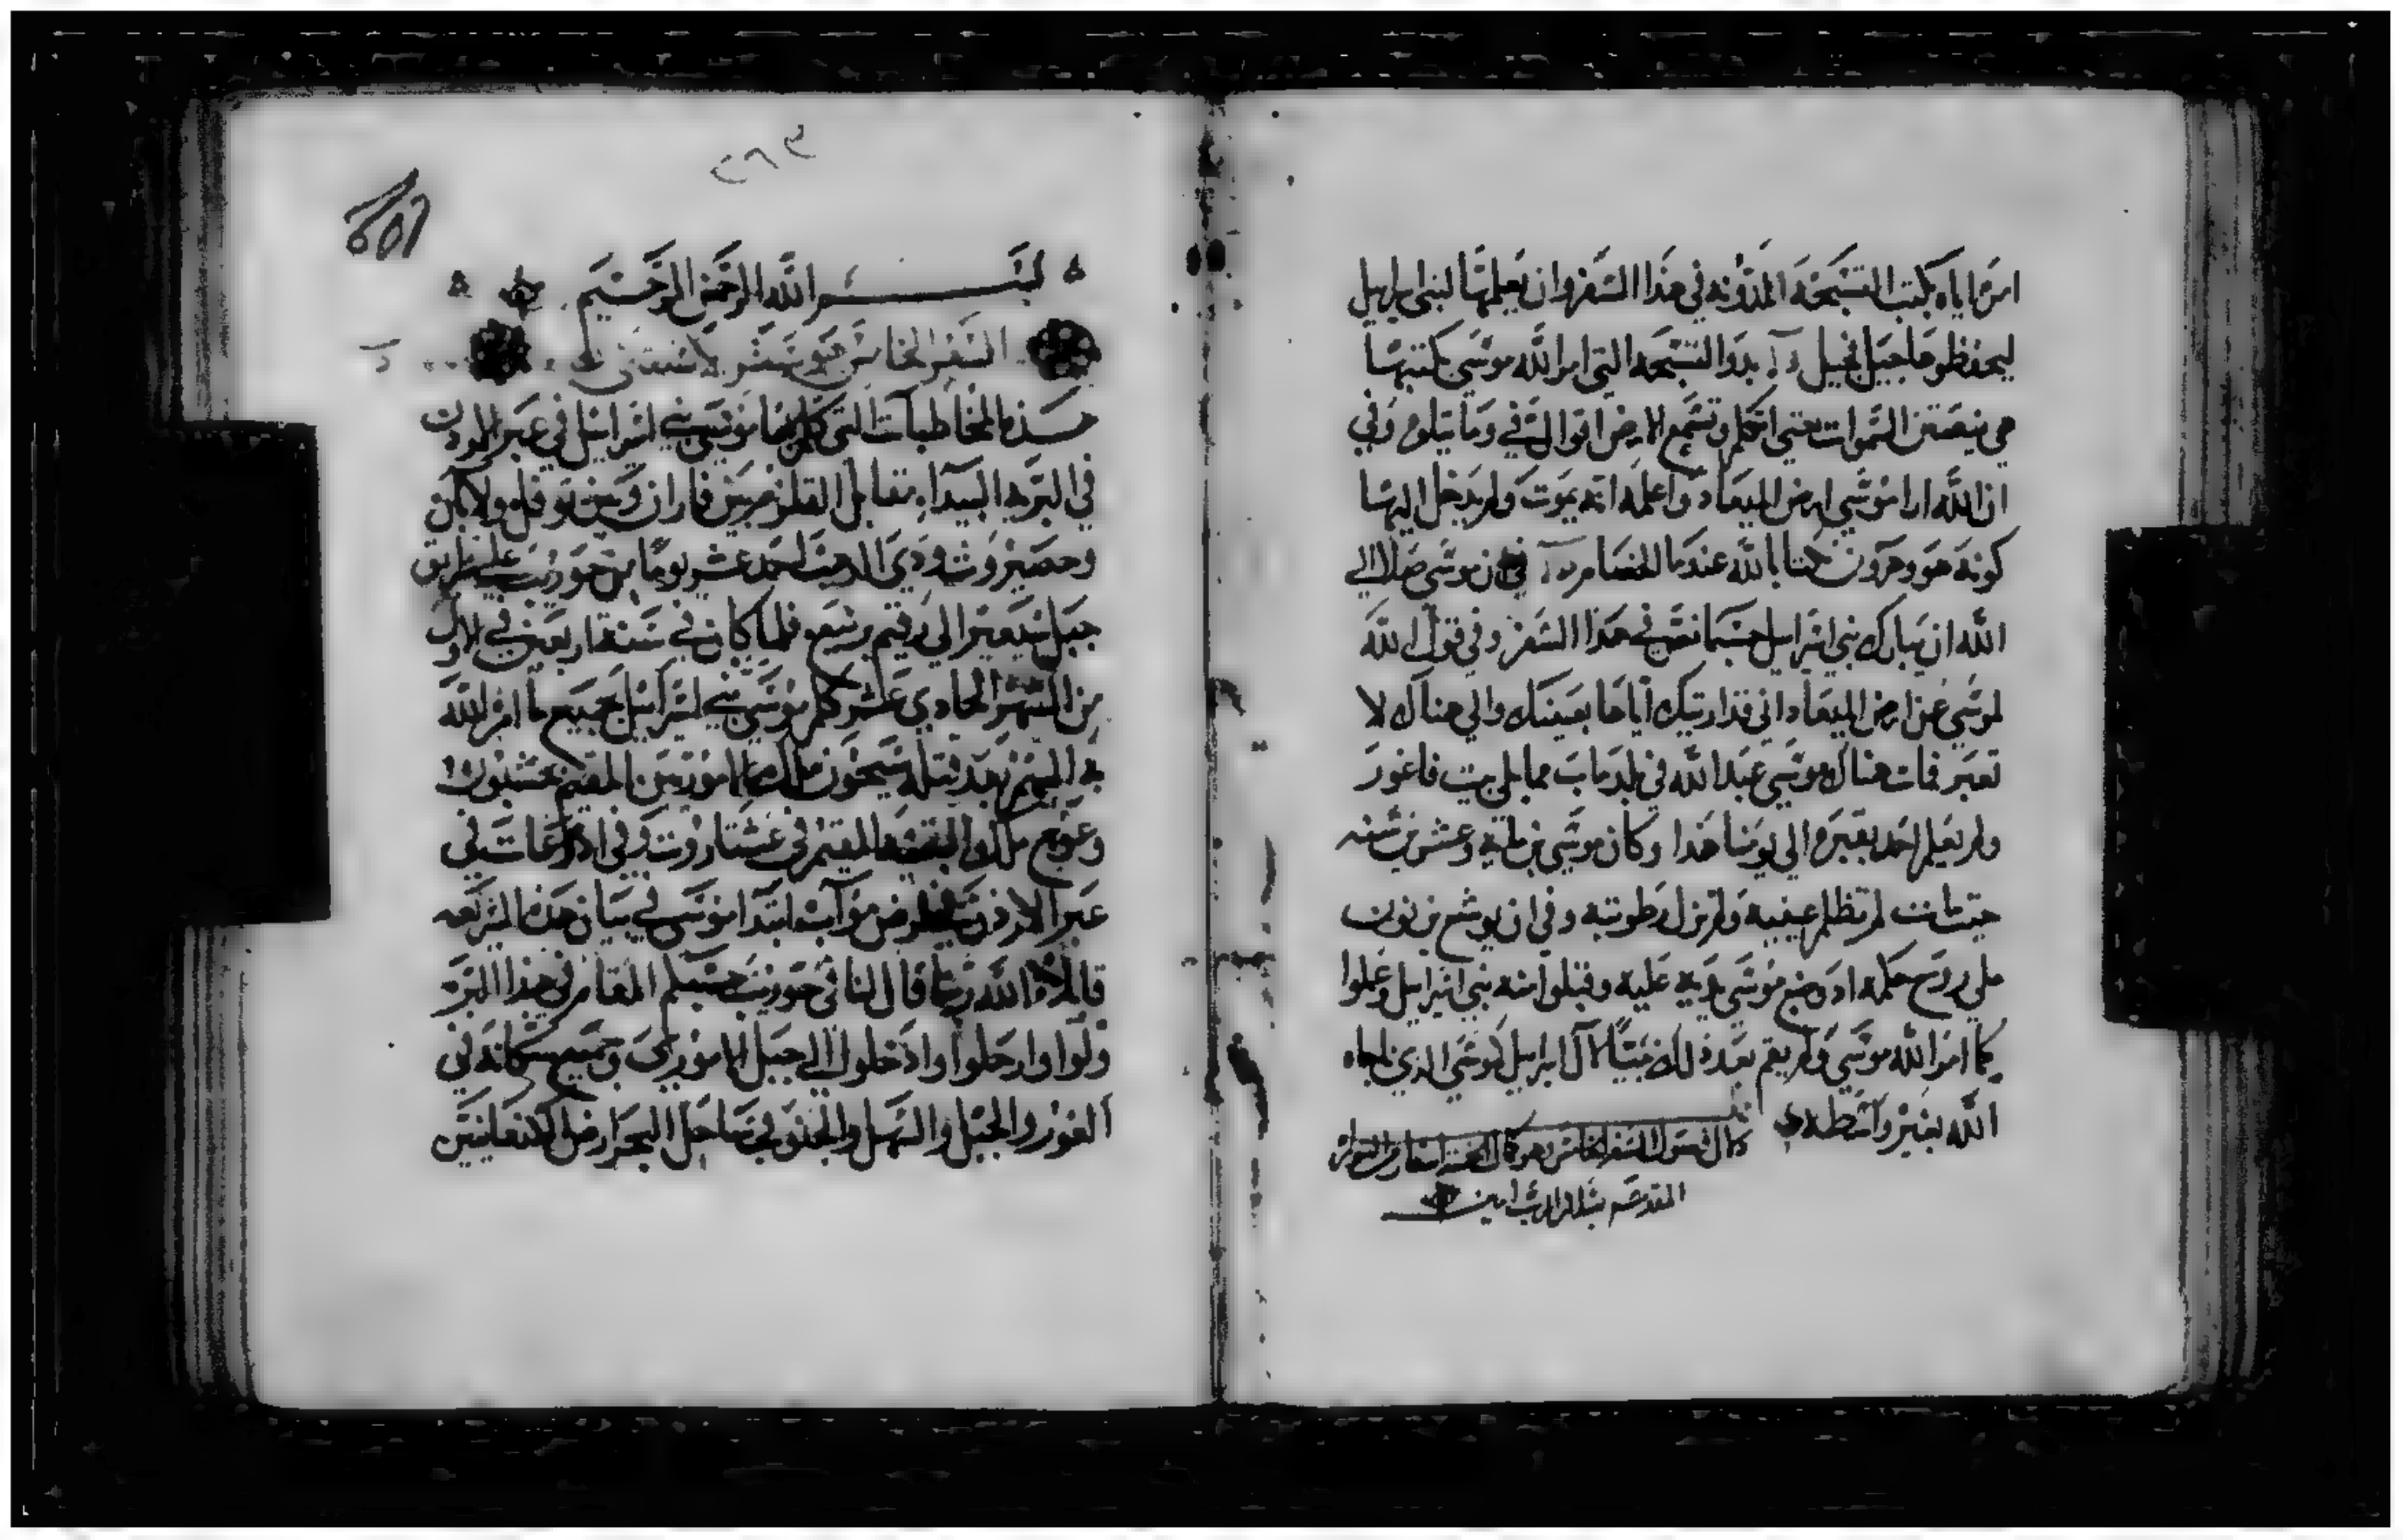 امره اياه بكتب التسبحه المدونه في هذا السفر وان يعلمها لبني اسراييل
ليحفظوها جيل بجيل بدو التسبحه التي امر الله موسى بكتبتها
هي ينصتن السموات حتى اتكلم وتسمع الارض اقوال في وما يتلوه وفي
ان الله ارا موسى ارض الميعاد واعلمه انه يموت ولم يدخل اليها
كونه هو وهرون بالله عند ما الخصام في ان موسى صلا الي
الله ان يبارك بني اسراييل حسبما نص في هذا السفر وفي قول الله
لموسى عن ارض الميعاد اني قد اريتك اياها بعينك والي هناك لا
تعبر فمات هناك موسى عبد الله في بلد ماب مما يلي بيت فاغور
ولم يعلم احد بقبره الي يومنا هذا وكان موسى بن مايه وعشرين سنه
حيث مات لم تظلم عينيه ولم تزل رطوبته وفي ان يوشع بن نون
ملي روح حكمه اذ وضع موسى يديه عليه وقبلوا منه بني اسراييل وعملوا
كما امر الله موسى ولم يقم بعد ذلك نبيا لال اسراييل كموسى الذي ناجاه
الله بغير واسطه
كمال فصول السفر الخامس وهو كمال الخمسة اسفار من التوراه
المقدسه بسلام الرب امين
بسم الله الرحمن الرحيم
السفر الخامس هو سفر الاستثنى
هذه المخاطبات التي كلم بها موسى بني اسرائيل في عبر الاردن
في البريه البيدآء مقابل القلزم بين فاران وبين توفل ولابان
وحصيروث وذي الذهب احد عشر يوما من حوريب علي طريق
جبل سيعير الي رقيم برنيع فلما كان في سنة اربعين في الاول
من الشهر الحادي عشر كلم موسى بني اسرائيل جميع ما امر الله
به اليهم بعد قتله سيحون ملك الامورين المقيم بحشبون
وعوج ملك البثنيه المقيم في عشتاروت وفي اذرعات في
عبر الاردن في ارض موآب ابتدا موسى في بيان هذه الشريعه
قايلا الله ربنا قال لنا في حوريب حسبكم المقام في هذا البر
ولوا وارحلوا وادخلوا الي جبل الاموري وجميع سكانه في
الغور والجبل والسهل والجنوب في ساحل البحر ارض الكنعانيين